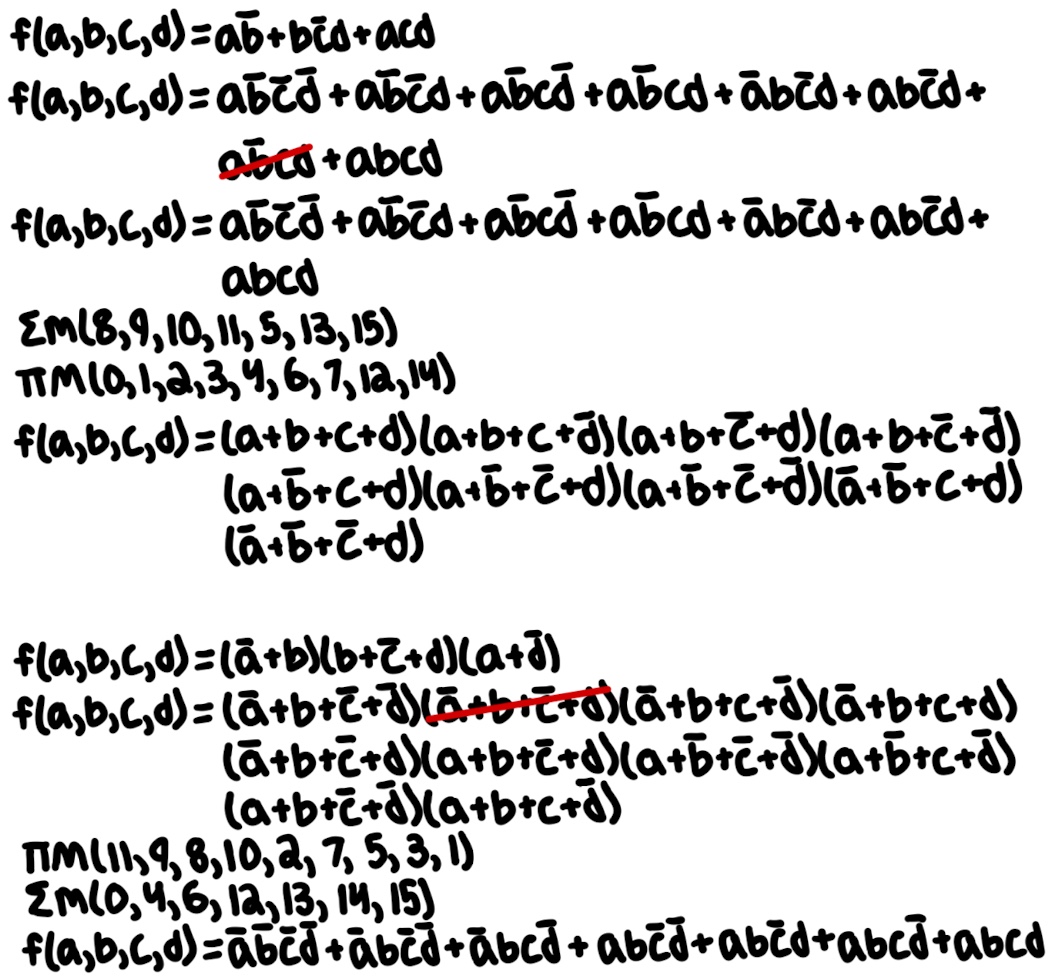 f(a,b,c,d)=ab̄+bc̄d+acd
f(a,b,c,d)=ab̄c̄d̄+ab̄c̄d+ab̄cd̄+ab̄cd+ābc̄d+abc̄d+
ab̄cd+abcd
f(a,b,c,d)=ab̄c̄d̄+ab̄c̄d+ab̄cd̄+ab̄cd+ābc̄d+abc̄d+
abcd
Σm(8,9,10,11,5,13,15)
πM(0,1,2,3,4,6,7,12,14)
f(a,b,c,d)=(a+b+c+d)(a+b+c+d̄)(a+b+c̄+d)(a+b+c̄+d̄)
(a+b̄+c+d)(a+b̄+c̄+d)(a+b̄+c̄+d̄)(ā+b̄+c+d)
(ā+b̄+c̄+d)
f(a,b,c,d)=(ā+b)(b+c̄+d)(a+d̄)
f(a,b,c,d)=(ā+b+c̄+d̄)(ā+b+c̄+d)(ā+b+c+d̄)(ā+b+c+d)
(ā+b+c̄+d)(a+b+c̄+d)(a+b̄+c̄+d̄)(a+b̄+c+d̄)
(a+b+c̄+d̄)(a+b+c+d̄)
πM(11,9,8,10,2,7,5,3,1)
Σm(0,4,6,12,13,14,15)
f(a,b,c,d)=āb̄c̄d̄+ābc̄d̄+ābcd̄+abc̄d̄+abc̄d+abcd̄+abcd